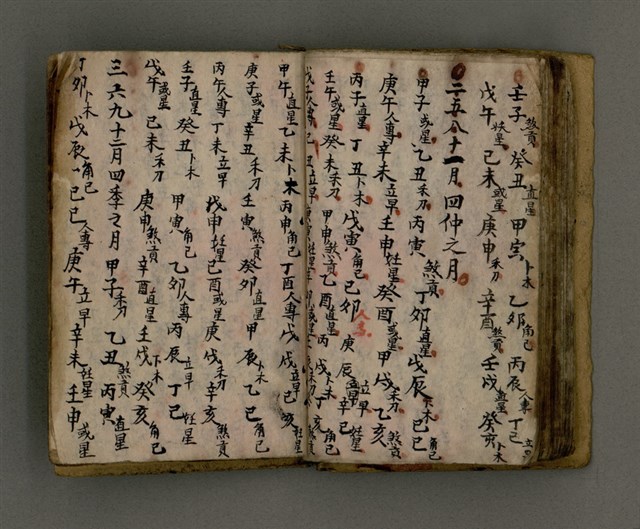 壬子煞貢 癸丑直星 甲寅卜木 乙卯角己 丙辰人專 丁巳立早
戊午妖星 己未或星 庚申禾刀 辛酉煞貢 壬戌直星 癸亥卜木
二五八十一月四仲之月
甲子或星 乙丑禾刀 丙寅煞貢 丁卯直星 戊辰卜木 己巳角己
庚午人專 辛未立早 壬申妖星 癸酉或星 甲戌禾刀 乙亥煞貢
丙子直星 丁丑卜木 戊寅角己 己卯人專 庚辰立早 辛巳妖星
壬午或星 癸未禾刀 甲申煞貢 乙酉直星 丙戌卜木 丁亥角己
戊子人專 己丑立早
甲午直星 乙未卜木 丙申角己 丁酉人專 戊戌立早 己亥妖星
庚子或星 辛丑禾刀 壬寅煞貢 癸卯直星 甲辰卜木 乙巳角己
丙午人專 丁未立早 戊申妖星 己酉或星 庚戌禾刀 辛亥煞貢
壬子直星 癸丑卜木 甲寅角己 乙卯人專 丙辰立早 丁巳妖星
戊午或星 己未禾刀 庚申煞貢 辛酉直星 壬戌卜木 癸亥角己
三六九十二月四季之月 甲子禾刀 乙丑煞貢 丙寅直星
丁卯卜木 戊辰角己 己巳人專 庚午立早 辛未妖星 壬申或星